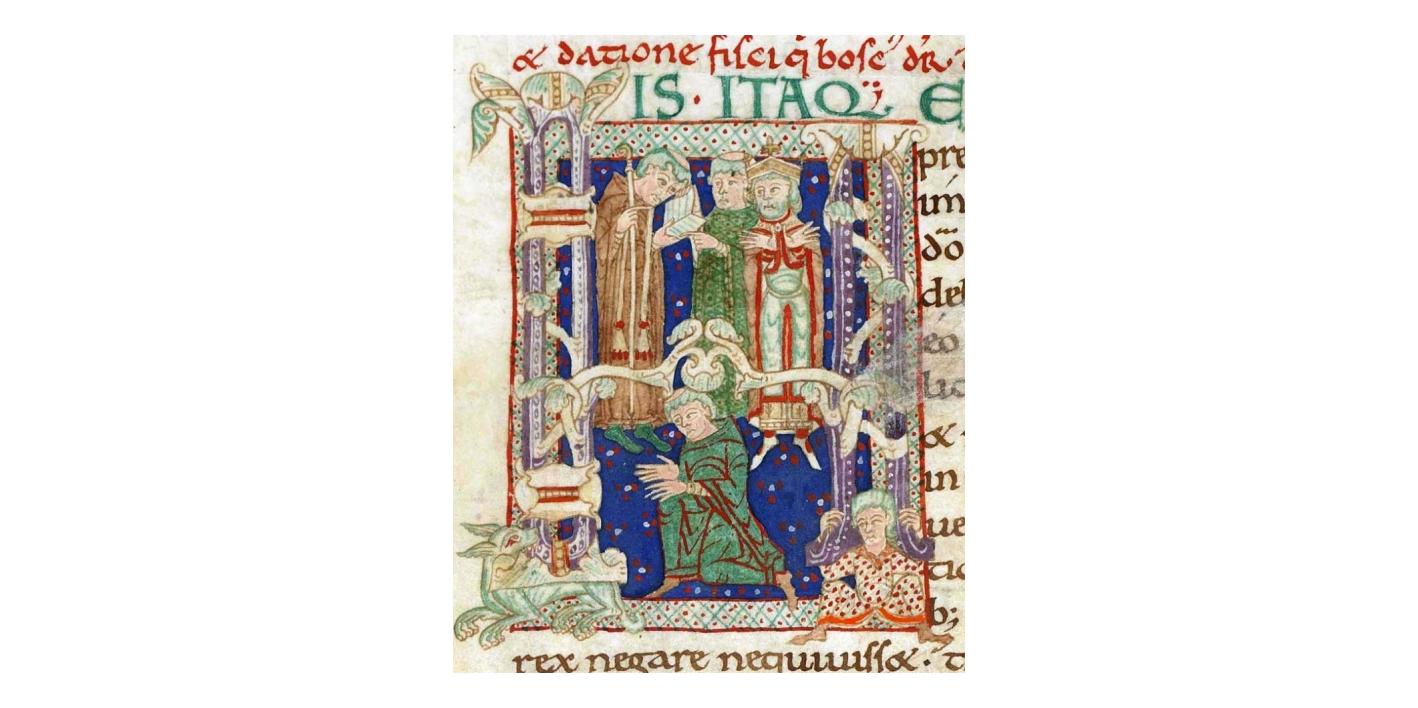 & datione fiſci q̄ boſe dr̄·
IS · ITAQ;
pre
im
dō
deb
eo
&
in
ue
tio
b;
rex negare nequiuiſſ& ·